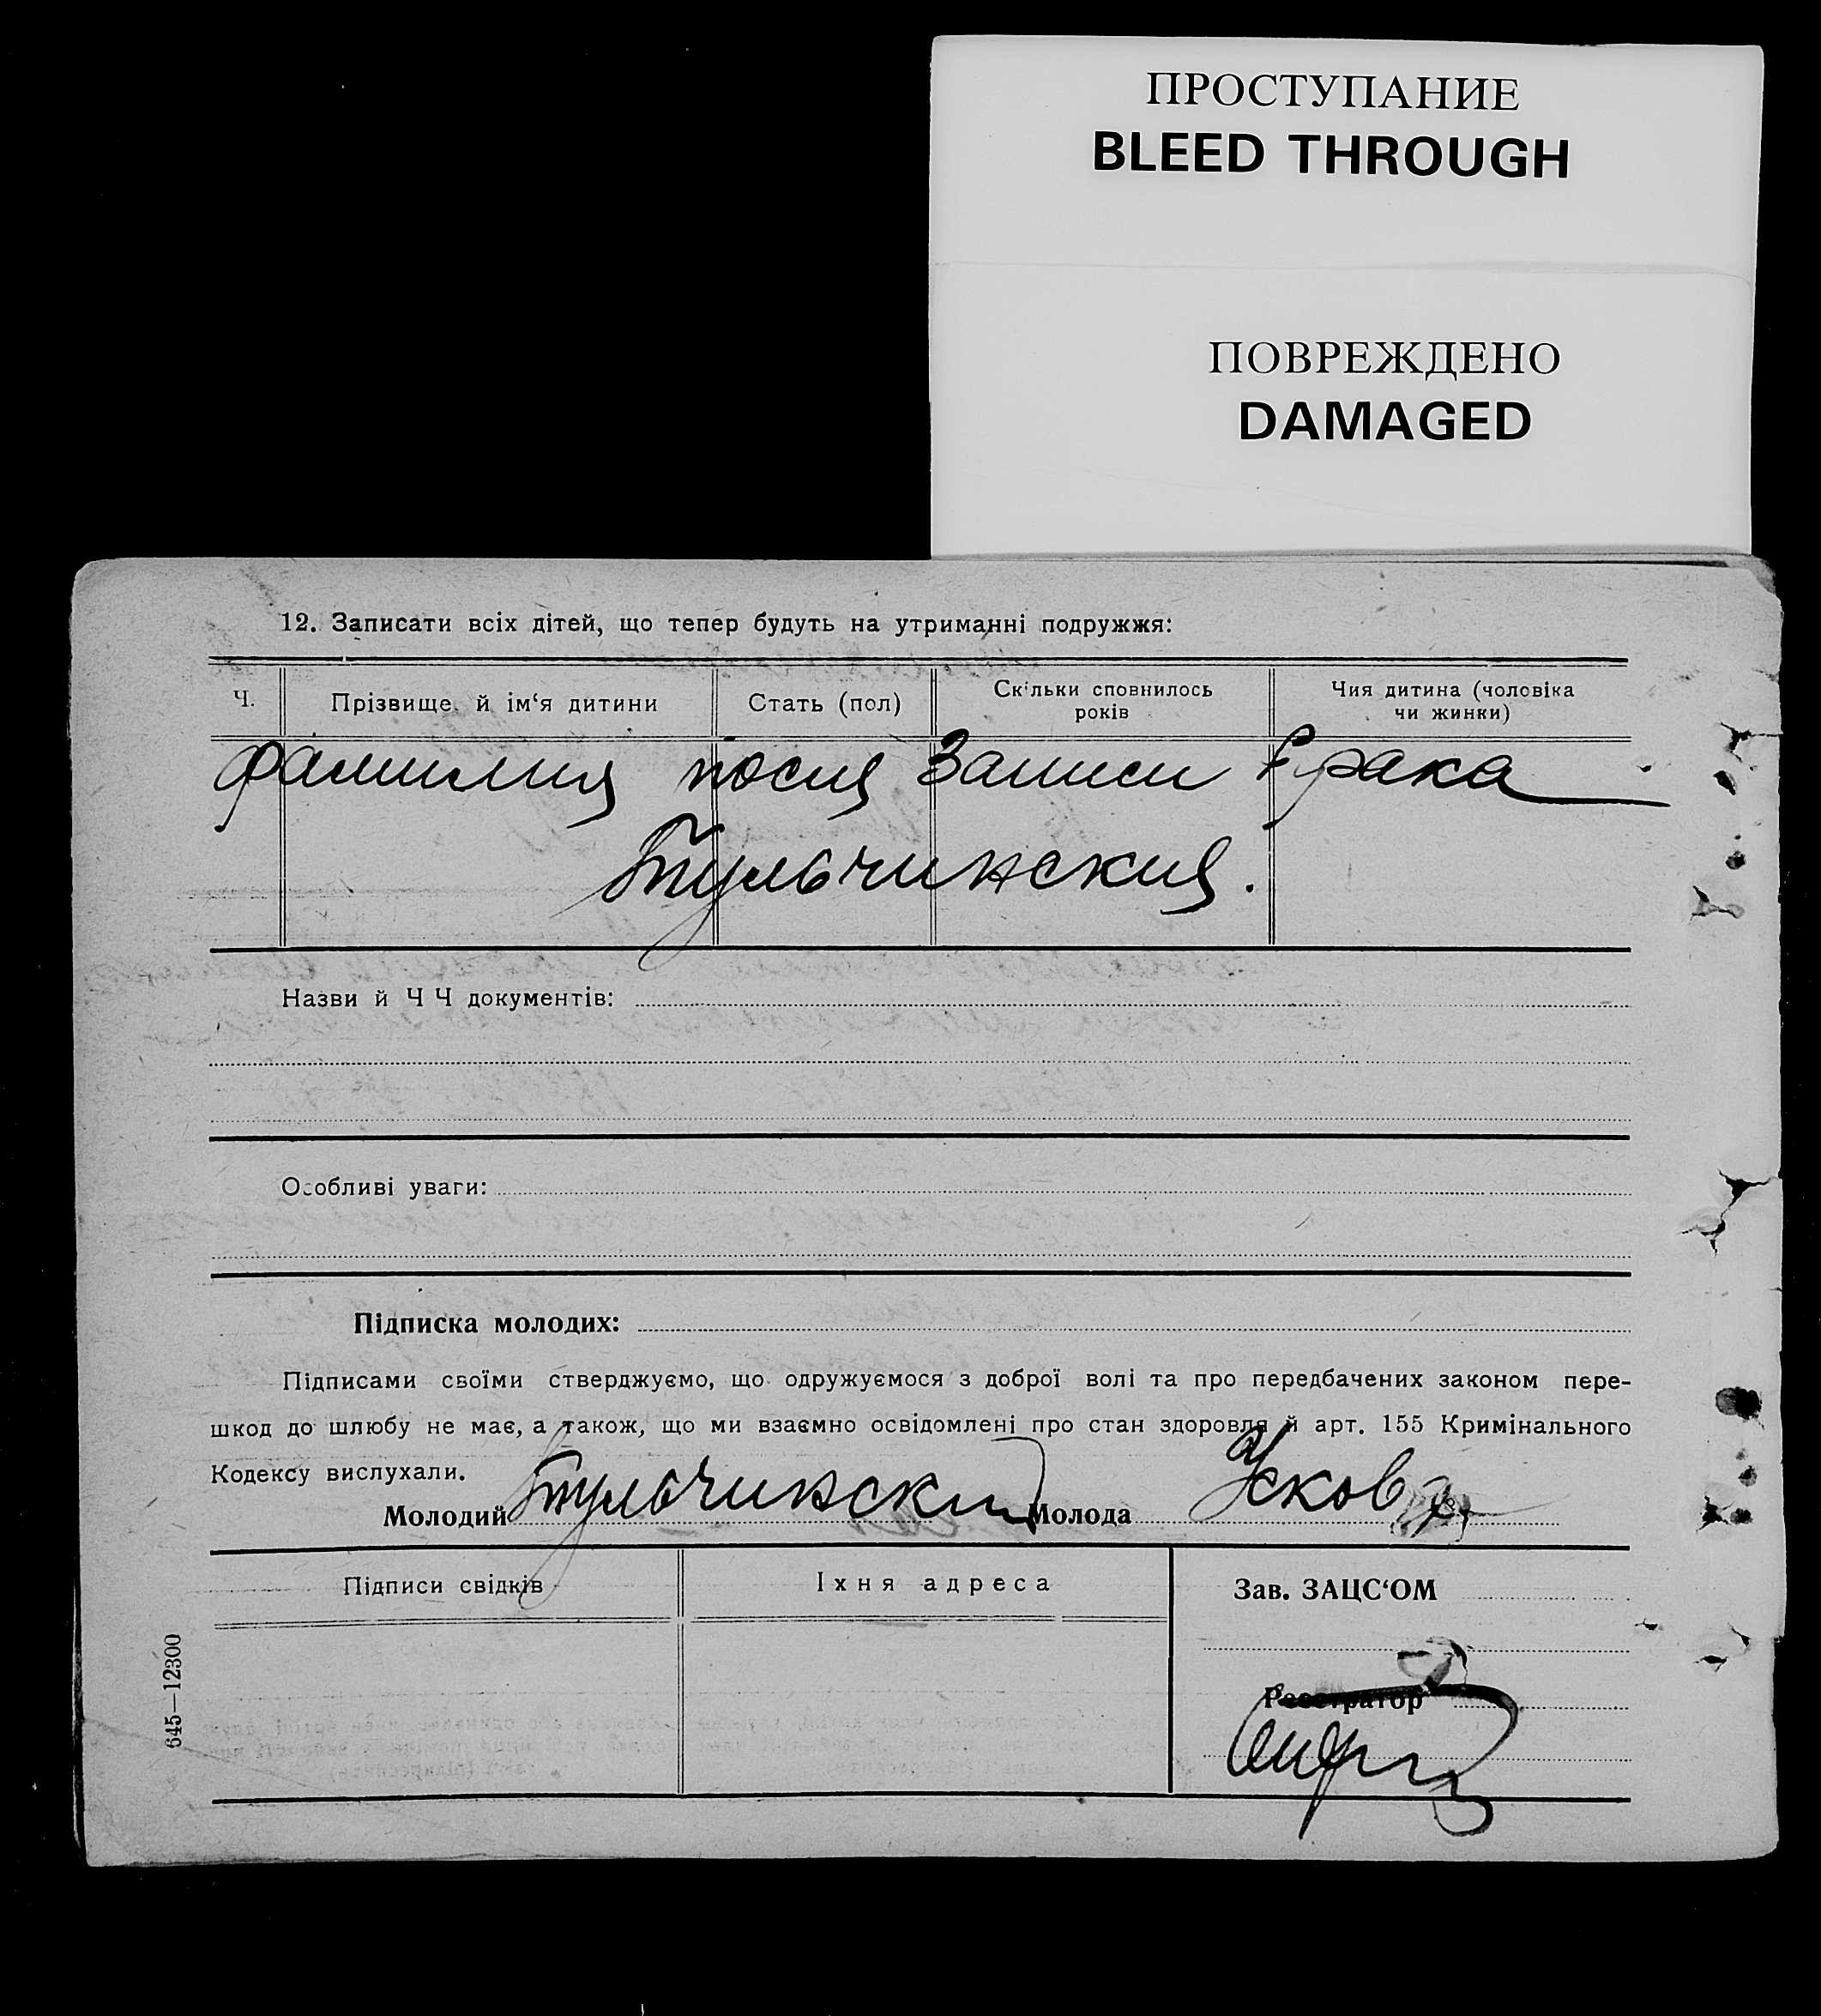 ПРОСТУПАНИЕ
BLEED THROUGH
ПОВРЕЖДЕНО
DAMAGED
12. Записати всіх дітей, що тепер будуть на утриманні подружжя:
Ч. Прізвище й ім‘я дитини Стать (пол) Скільки сповнилось років Чия дитина (чоловіка чи жинки)
фамилия посля записи брака
Тульчинския.
Назви й Ч Ч документів:
Особливі уваги:
Підписка молодих:
Підписами своїми стверджуємо, що одружуємося з доброї волі та про передбачених законом пере-
шкод до шлюбу не має, а також, що ми взаємно освідомлені про стан здоровля й арт. 155 Кримінального
Кодексу вислухали.
Молодий Тульчинский Молода Ускова
Підписи свідків Їхня адреса Зав. ЗАЦС‘ОМ
Реєстратор
645—12300